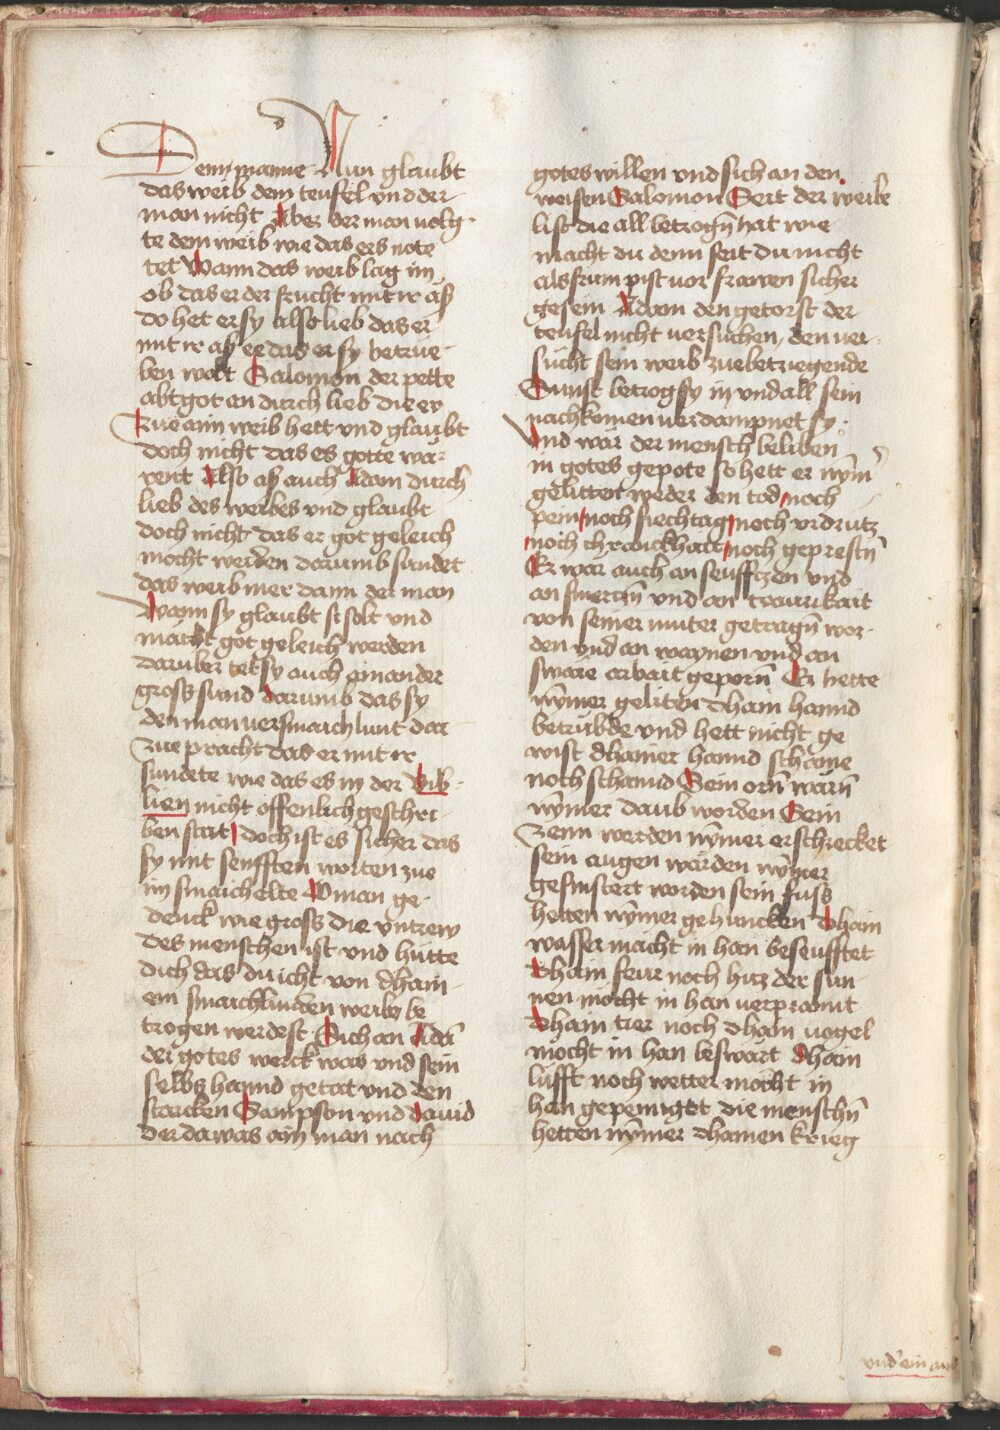 Dem manne Nun glaubt
das weib dem teufel vnd der
man nicht Aber der man uolg
te dem weib wie das ers note
tet Wann das weib lag im
ob das er der frucht mit ir aß
do het er sy also lieb das er
mit ir aß ee das er sy betrue
ben wolt Salomon der pette
abtgot an durch lieb die er
zue aim weib hett vnd glaubt
doch nicht das es gotte wa
rent Also aß auch Adam durch
lieb des weibes vnd glaubt
doch nicht das er got geleich
mocht werden darumb sundet
das weib mer dann der man
Wann sy glaubt si solt vnd
macht got geleich werden
daruber tet sy auch ain ander
gross sund darumb das sy
den man uersmaichlunt dar
zue pracht das er mit ir
sundete wie das es in der Bib
lien nicht offenlich geschri
ben stat doch ist es sicher das
sy mit senfften worten zue
im smaichelte O man ge
denck wie gross die vntrew
des menschen ist vnd hütte
dich das du icht von dhain
em smaichlunden weibe be
trogen werdest Sich an Adam̄
der gotes werck was vnd sein
selbs hannd getat vnd den
starcken Sampson vnd dauid
der da was ain man nach
gotes willen vnd sich an den
weisen Salomon Seit der weibe
list die all betrogn̄ hat wie
macht du denn seit du nicht
als frum pist uor frawen sicher
gesein Adam den getorst der
teufel nicht uersuchen, den uer
sucht sein weib zue betziegende
Sunst betrog sy in vnd all sein
nachkomen uerdampnet sy
Vnd war der mensch beliben
in gotes gepote so hett er nym̄
gelitten weder den tod noch
pein noch siechtag noch vrdrutz
noch chranckhait noch geprestn̄
Er war auch an seufftzen vnd
an smertzn̄ vnd an traurikait
von seiner muter getragn̄ wor
den vnd an waynen vnd an
sware arbait geporn̄ Er hette
nym̄er geliten dhain hannd
betrubde vnd hett nicht ge
wist dhainer hannd schame
noch schannd Sein orn̄ warn̄
nym̄er daub worden Sein
zenn werden nym̄er erschrecket
sein augen warden nym̄er
gefinstert worden sein fuss
hetten nym̄er gehuncken Dhain
wasser macht in han beseufftet
Dhain feur noch hitz der sun
nen mocht in han uerprannt
Dhain tier noch dhain uogel
mocht in han beswart Dhain
lufft noch wetter mocht in
han gepeiniget die menschn̄
hetten nym̄er dhainen krieg
vnd ein